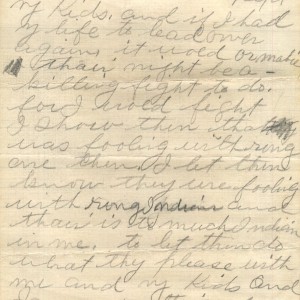 my Kids. and if I had
my life to lead over
again, it wold
thair might be a
killing fight to do.
for I wold fight
I show then that
was fooling with rong
one then. I let then
know they ware fooling
with rong Indian and
thair is to much Indian
in me. to let then do
what thy please with
me and my Kids and